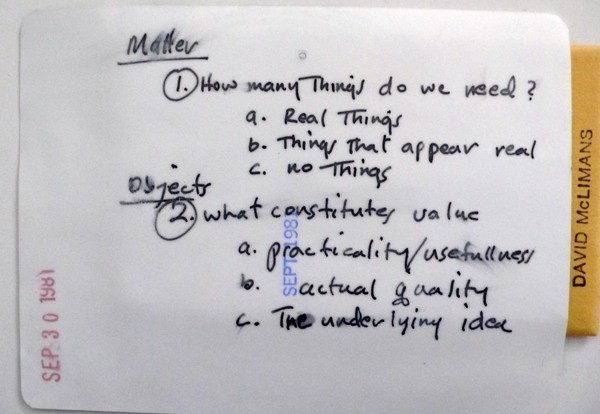 Matter
1. How many Things do we need?
a. Real Things
b. Things That appear real
c. no Things
Objects
2. what constitutes value
a. practicality/usefullness
b. actual quality
c. The underlying idea
SEP 30 1981
SEPT 1981
DAVID McLIMANS